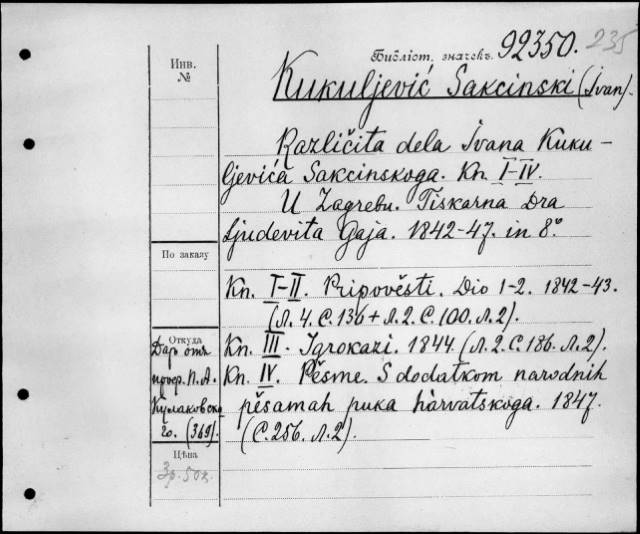 Библіот. значекъ. 92350. 235
Инв.
№
Kukuljević Sakcinski (Ivan).
Različita dela Ivana Kuku-
ljevića Sakcinskoga. Kn. I-IV.
U Zagrebu. Tiskarna Dra
Ljudevita Gaja. 1842-47. in 8.º
По заказу
Kn. I-II. Pripověsti. Dio 1-2. 1842-43.
(Л. 4. С. 136 + Л. 2. С. 100. Л. 2).
Откуда
Kn. III. Igrokazi. 1844. (Л. 2. С. 186. Л. 2).
Kn. IV. Pěsme. S dodatkom narodnih
pěsamah puka hàrvatskoga. 1847.
(С. 256. Л. 2).
Даръ отъ
проф. П. А.
Кулаковска
го. (369).
Цѣна
3р. 50к.